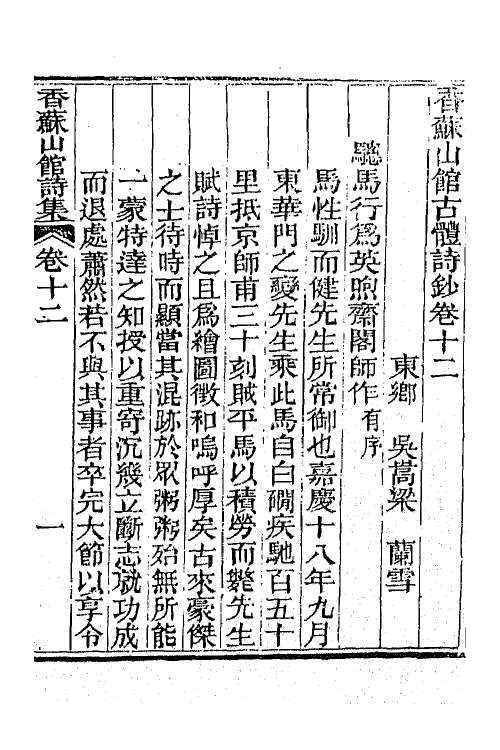 香蘇山館古體詩鈔卷十二
東鄉 吳嵩梁 蘭雪
馬行為英煦齋閣師作有序
馬性馴而健先生所常御也嘉慶十八年九月
東華門之變先生乘此馬自白磵疾馳百五十
里抵京師甫三十刻賊平馬以積勞而斃先生
賦詩悼之且為繪圖徵和嗚呼厚矣古來豪傑
之士待時而顯當其混跡於眾粥粥殆無所能
一蒙特達之知授以重寄沉幾立斷志就功成
而退處蕭然若不與其事者卒完大節以享令
香蘇山館詩集 卷十二 一